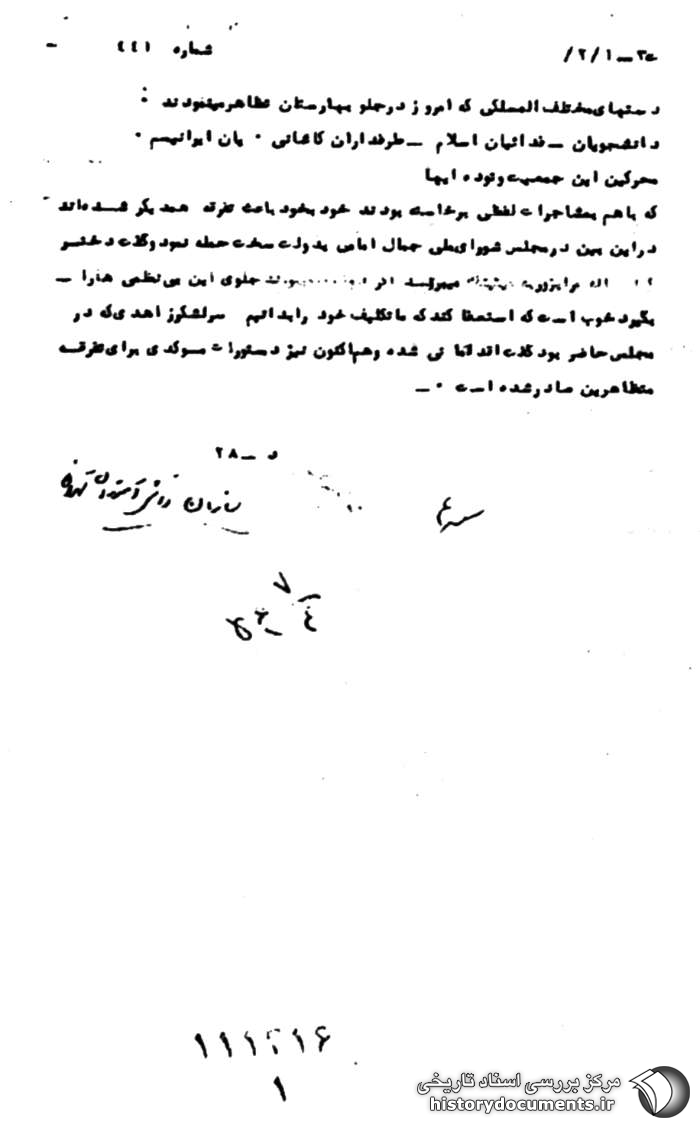 شماره ٤٤١ -
دستهای مختلف المسلکی که امروز در جلو بهارستان تظاهر مینمودند :
دانشجویان ــ فدائیان اسلام ــ طرفداران کاشانی ۰ پان ایرانیسم ۰
محرکین این جمعیت وتوده ایها
که باهم بمشاجرات لفظی برخاسته بودند خود بخود باعث تفرقه همدیگر شده‌اند
در این بین در مجلس شورایملی جمال امامی بدولت سخت حمله نمود وگفت دختر
جلوی این بی نظمی هارا ــ
بگیرد خوب است که استعفا کند که ماتکلیف خود را بدانیم سرلشگر زاهدی که در
مجلس حاضر بود گفت اقداماتی شده وهم اکنون نیز دستورات موکدی برای تفرقه
متظاهرین صادر شده است ۰ ــ
د ــ ٢٨
سازمان دانش آموزان تهران
١
مرکز بررسی اسناد تاریخی
historydocuments.ir